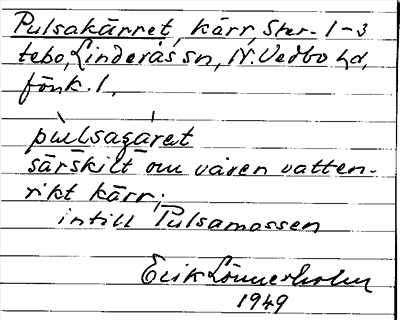 Pulsakärret, kärr, Ster- 1-3
tebo, Linderås sn, N. Vedbo hd,
Jönk. l.
pu̇lsagȧrət
särskilt om våren vatten-
rikt kärr;
intill Pulsamossen
Erik Lönnerholm
1949